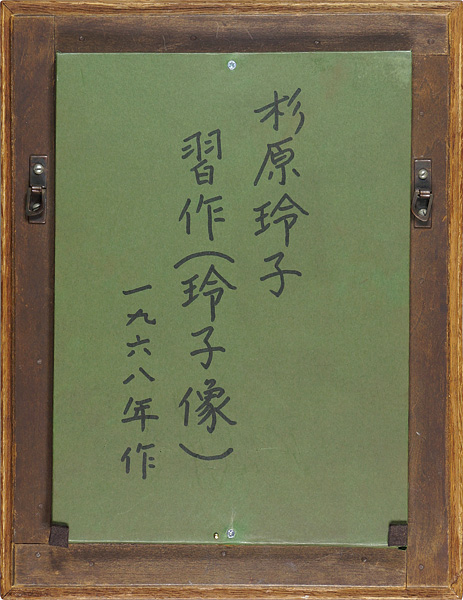 杉原玲子
習作(玲子像)
一九六八年作